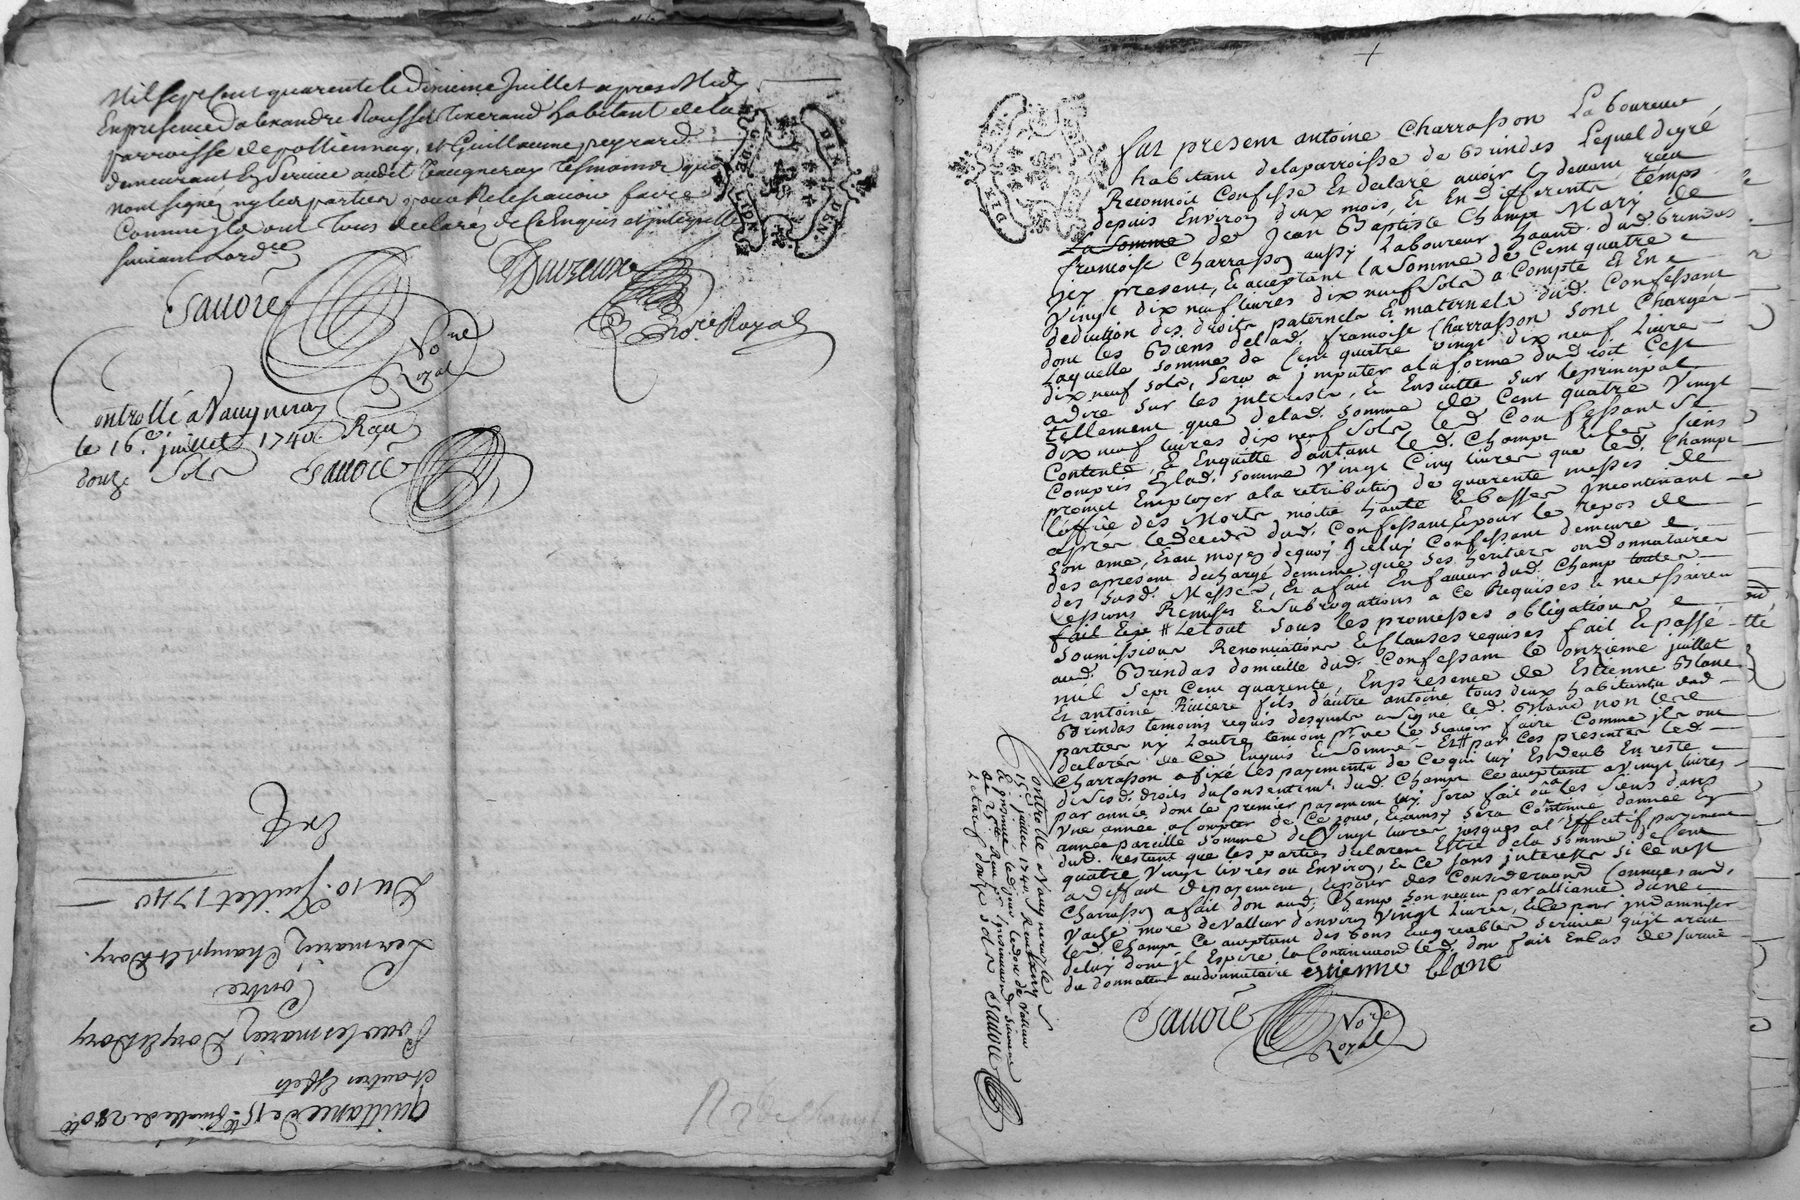 Mil sept cent quarente le dixieme Juillet apres Midy
En presence d'alexandre Rousset Tixerand habitant de la
parroisse de pollionnay, et Guillaume peyrard
demeurant En Service audit Vaugneray Tesmoins qui
nont signez ny les parties pour ne le scavoir faire
Comme ils ont Tous declarez de Ce Enquis et interpellés
suivant Lord.ce
Savoie
Duvreux
No.re Royal
No.re Royal
Controllé a Vaugneray
le 16.e juillet 1740. Reçu
douze Sols
Savoié
GEN. DE LION
DIX DEN.
quittance de 15.tt finalle de 280.tt
et autres Effets
Pour les mariez Dory et Dory
Contre
Les mariez Champt et Dory.
Du 10.e Juillet 1740
Ex.é
fut present antoine Charrasson Laboureur
habitant de la parroisse de Brindas Lequel de gré
Reconnoit Confesse Et declare avoir Cy devant reçu
depuis Environ deux mois, Et En differents temps
la somme de Jean Baptiste Champt Mary de
francoise Charrasson aussy Laboureur habitant dud. Brindas
icy present, & aceptant la Somme de Cent quatre
Vingt dix neuf livres dix neuf Sols a Compte Et En
deduction des droits paternels & maternels dud. Confessant
dont les Biens de lad. francoise Charrasson sont Chargés
Laquelle somme de Cent quatre vingt dix neuf Livres
dix neuf sols, Sera a jmputer a la forme du droit C'est
a dire sur les jnterests, & Ensuitte sur le principal
tellement que de lad. somme de Cent quatre Vingt
dix neuf livres dix neuf Sols led. Confessant Se
Contente, & En quitte d'autant led. Champt & les siens
Compris En lad. somme Vingt Cinq livres que led. Champt
promet Employer a la retribution de quarente messes de
l'office des Morts moitié haute & basses jncontinant
après le deceds dud. Confessant & pour le repos de
Son ame, Et au moyen de quoy Jceluy Confessant demeure
des apresent dechargé de meme que ses heritiers ou donnataires
des susd. Messes, Et a fait En faveur dud. Champ toutes
Cessions Remises & Subrogations a Ce Requises & necessaires
fait & # Le tout sous les promesses obligations
Soumissions Renonciations & Clauses requises fait & passé
aud. Brindas domicille dud. Confessant le onzieme juillet
mil sept Cent quarente, En presence de Estienne Blanc
Et antoine Riviere fils d'autre antoine tous deux habitants dud.
Brindas temoins requis desquels a signé led. Blanc non les
parties ny l'autre temoin p.r ne le scavoir faire Comme ils ont
declarés de Ce Enquis & sommé. Et # par Ces presentes led.
Charrasson a fixé les payements de Ce qui luy Est deub En reste
de sesd. droits du Consentement dud. Champt Ce aceptant a vingt livres
par année dont le premier payement luy sera fait ou a les siens dans
une année a Compter de Ce jour, & ainsy sera Continué d'année En
année pareille somme de Vingt livres jusques a l'Effectif payement
dud. restant que les parties declarent Estre de la somme de Cent
quatre vingt livres ou Environ, & Ce sans jnterests si Ce n'est
a deffaut de payement, & pour des Considerations Connues aud.
Charrasson a fait don aud. Champ son neveu par alliance d'une
Vache more de Valleur d'environ Vingt Livres, & Ce pour jndamniser
led. Champt Ce aceptant des bons & agreables service qu'il a reçu
de luy dont jl Espere la Continuation led. don fait En Cas de survie
du donnateur au donnataire estienne blanc
Savoié No.re Royal
Controllé a Vaugneray le
15.e juillet 1740. Reçu
Savoié